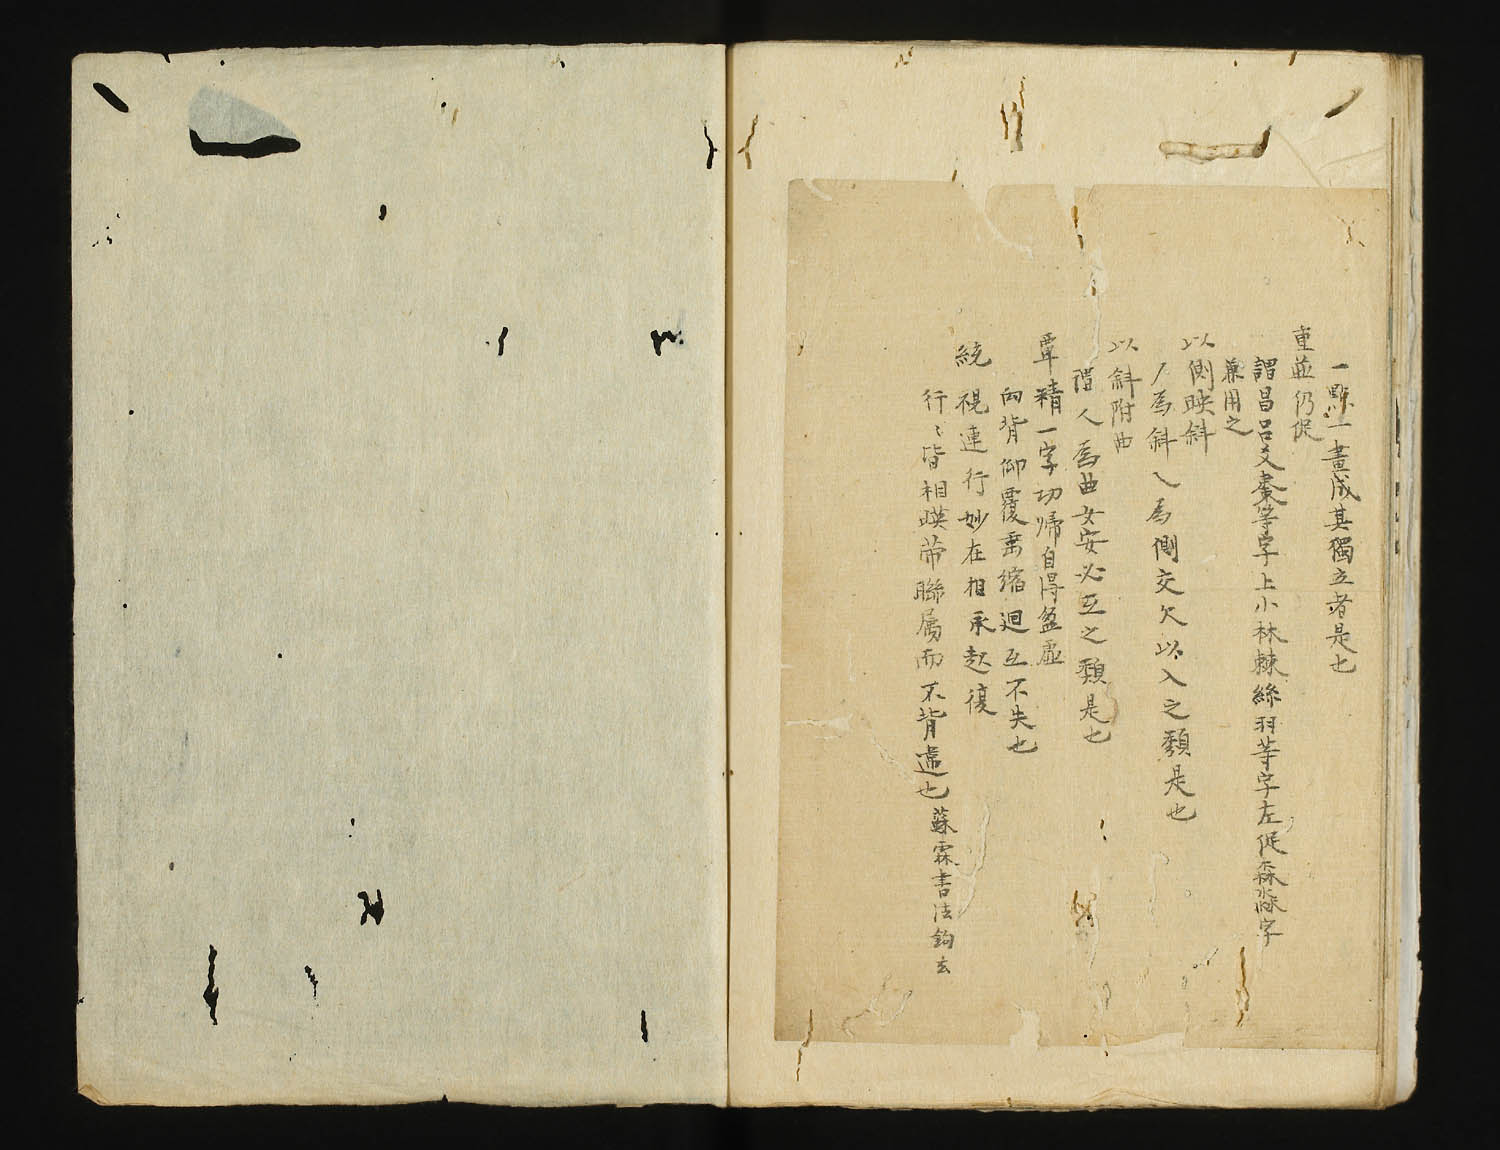 一點一畫成其獨立者是也
重並仍促
謂昌呂爻棗等字上小林棘絲羽等字左促森淼字
兼用之
以側映斜
丿為斜乀為側交欠以入之類是也
以斜附曲
為曲女安必互之類是也
覃精一字功歸自得盈虛
向背仰覆垂縮迴互不失也
統視連行妙在相承起復
行〻皆相暎帶聯属而不背違也 蘇霖書法鉤玄